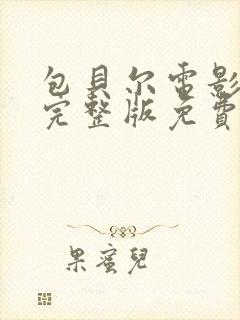 包貝尔電影
完整版免費
果蜜兒